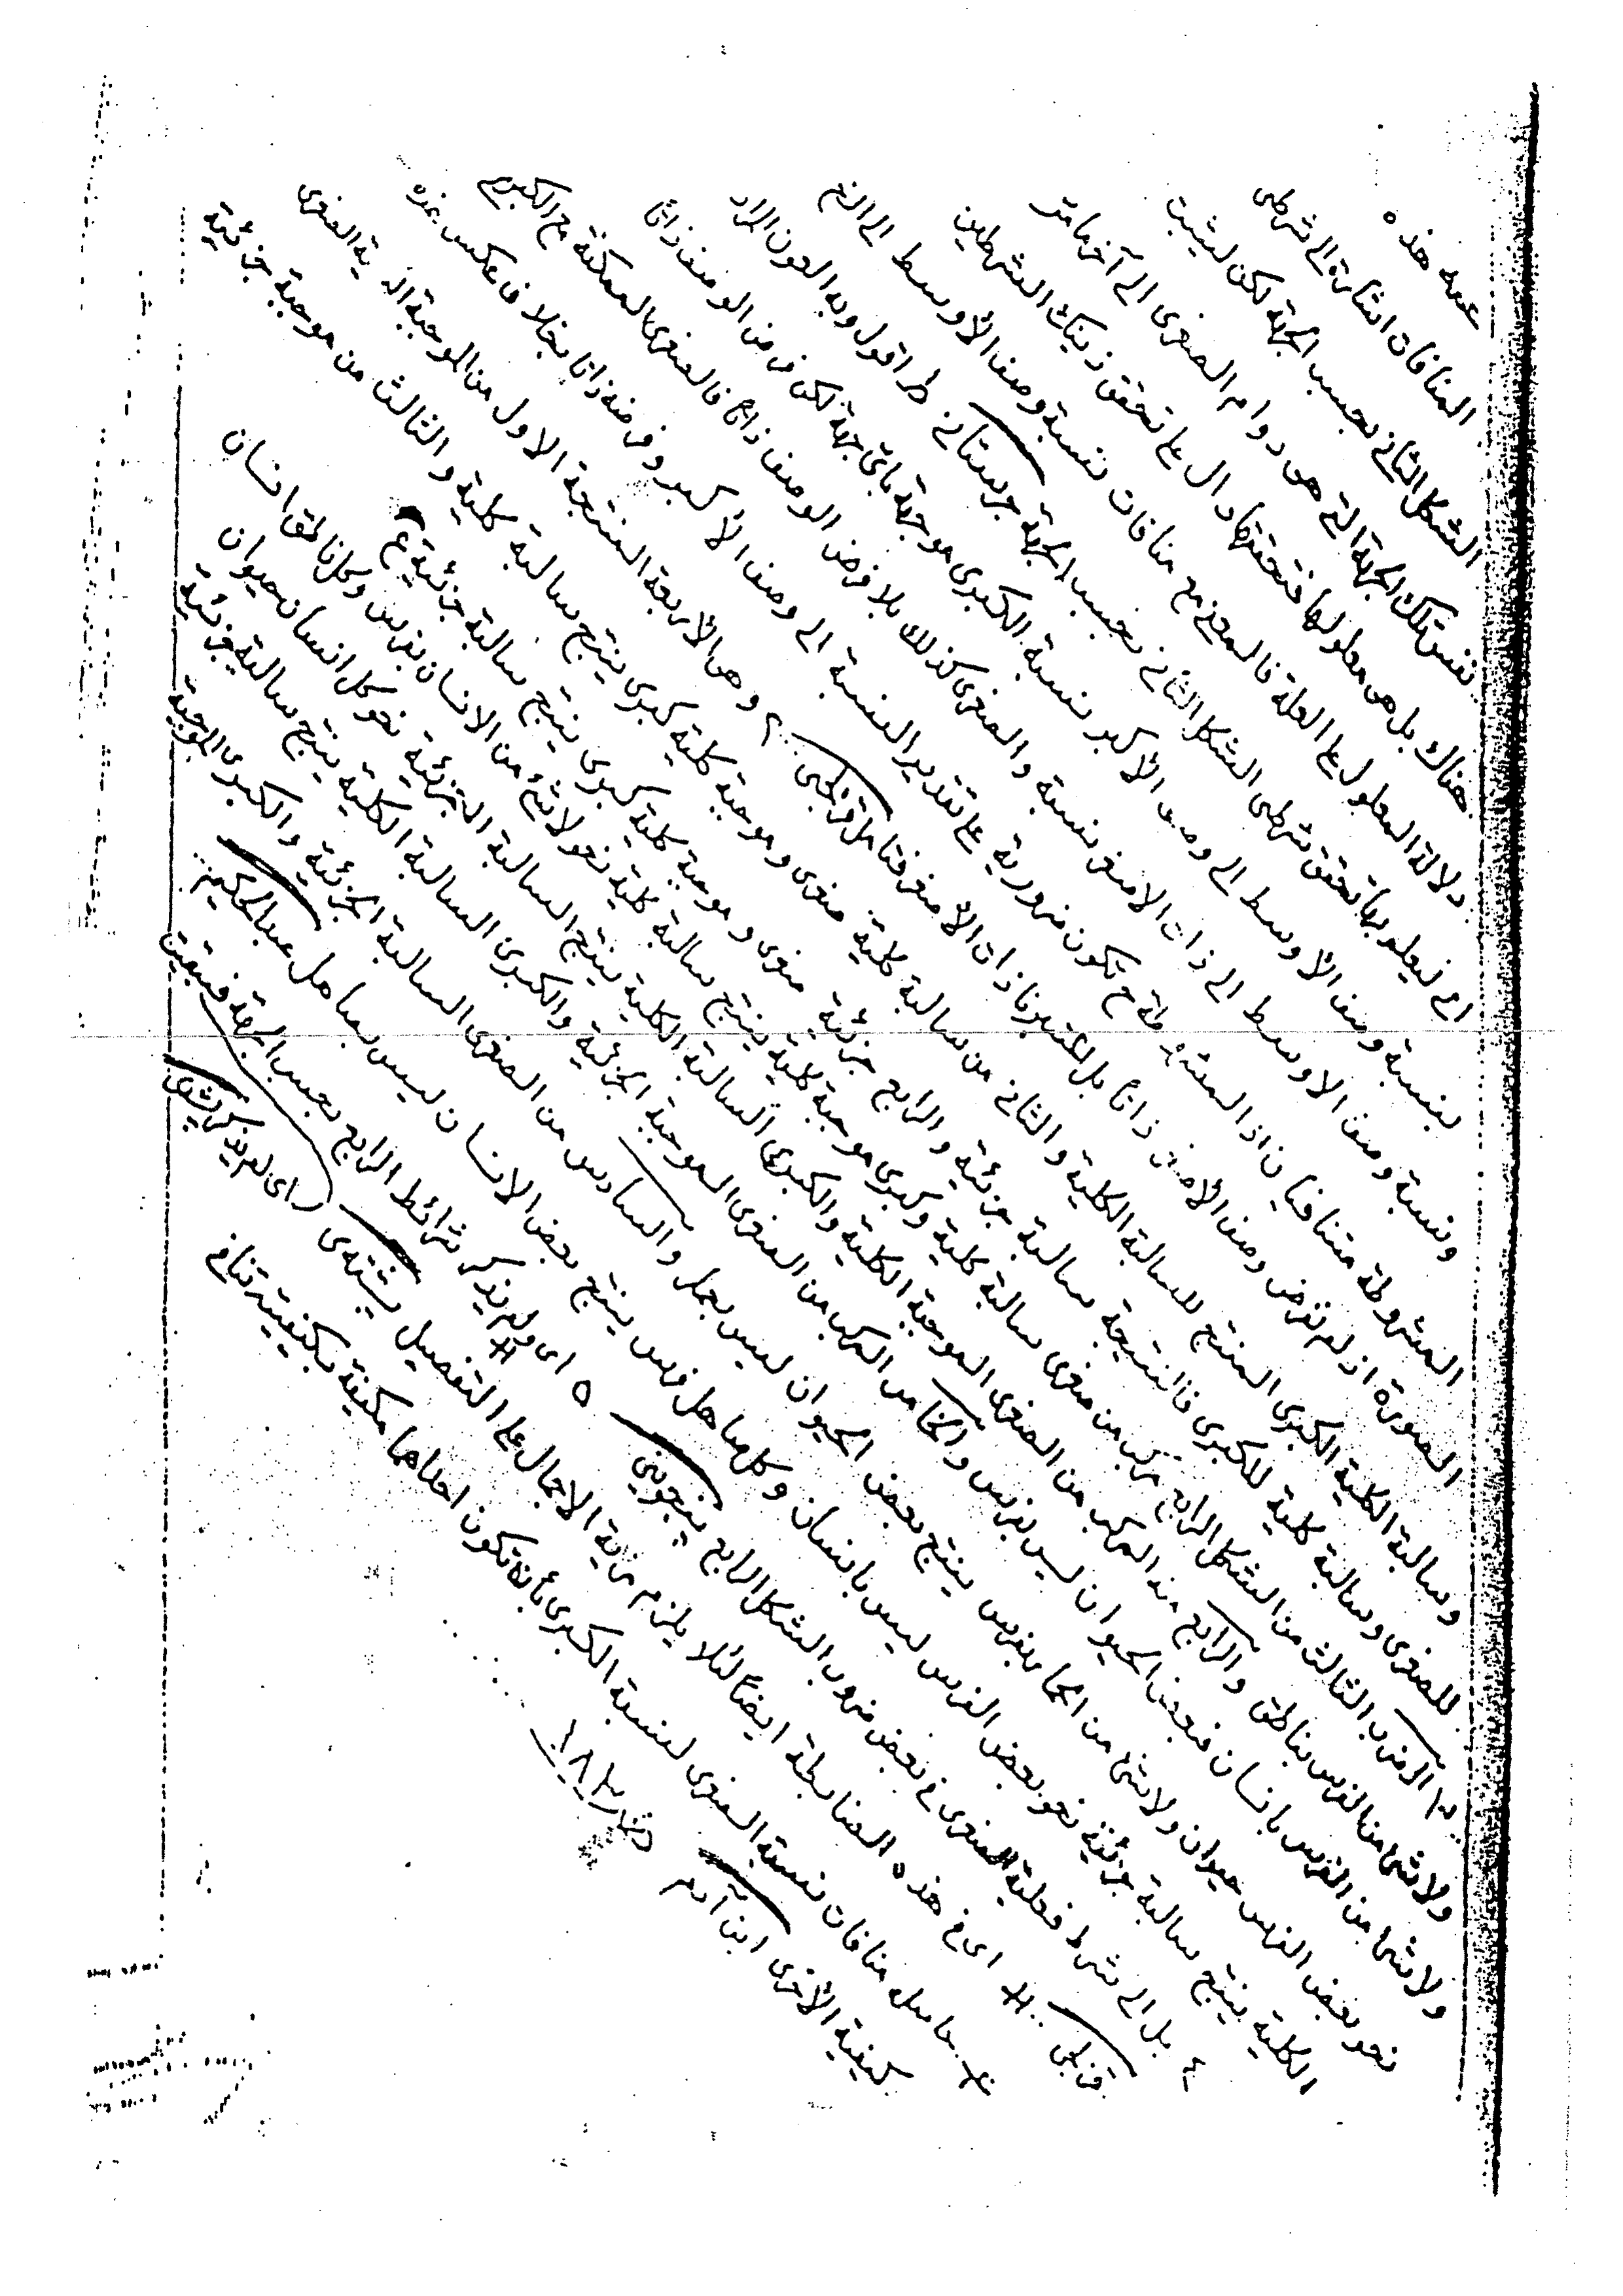 عمه هذه
المنافات اشارة الى شرطى
الشكل الثانى بحسب الجهة لكن ليثبت
نفس تلك الجهة التى هى دوام الصغرى الى آخر ما مر
هناك بل هى معلولها فتحققها دال على تحقق ذينك الشرطين
دلالة المعلول على العلة فالمعنى مع منافات نسبة وصف الأوسط الى الخ
اى ليعلم بها تحقق شرطى الشكل الثانى بحسب الجهة جرستانى ط اقول وبه العون المراد
بنسبة وصف الأوسط الى وصف الأكبر نسبة الكبرى موجهة باى جهة لكن فرض الوصف ذاتا
ونسبة وصف الاوسط الى ذات الاصغر نسبة والصغرى كذلك بلا فرض الوصف ذاتا فالصغرى الممكنة مع الكبرى
المشروطة متنافيان اذ المشروطة ح تكون ضرورية على تقدير النسبة الى وصف الأكبر وفرضه ذاتا بخلاف ما عكس هذه
الصورة اذ لم نفرض وصف الأصغر ذاتا بل اعتبرنا ذات الأصغر فتامل قزلجى ٢ وهى الأربعة المنتجة الاول من الموجبة الكلية الصغرى
وسالبة الكلية الكبرى المنتج للسالبة الكلية والثانى من سالبة كلية صغرى وموجبة كلية كبرى ينتج سالبة كلية والثالث من موجبة جزئية
للصغرى وسالبة كلية للكبرى فالنتيجة سالبة جزئية والرابع جزئية صغرى وموجبة كلية كبرى ينتج سالبة جزئية ع
٣ الضرب الثالث من الشكل الرابع مركب من صغرى سالبة كلية وكبرى موجبة كلية ينتج سالبة كلية نحو لا شئ من الانسان بفرس وكل ناطق انسان
ولا شئ من الفرس بناطق والرابع منه المركب من الصغرى الموجبة الكلية والكبرى السالبة الكلية ينتج السالبة الجزئية نحو كل انسان حيوان
ولا شئ من الفرس بانسان فبعض الحيوان ليس بفرس والخامس المركب من الصغرى الموجبة الجزئية والكبرى السالبة الكلية ينتج سالبة جزئية
نحو بعض الفرس حيوان ولا شئ من الحمار بفرس ينتج بعض الحيوان ليس بحمار والسادس من الصغرى السالبة الجزئية والكبرى الموجبة
الكلية ينتج سالبة جزئية نحو بعض الفرس ليس بانسان وكل صاهل فرس ينتج بعض الانسان ليس بصاهل عبد الحكيم
٤ بل الى شرط فعلية الصغرى فى بعض ضروب الشكل الرابع ينجوينى ٥ اى ولم يذكر شرائط الرابع بحسب الجهة فبقيت
قزلجى اى فى هذه الضابطة ايضا لئلا يلزم مزية الاجمال على التفصيل يشتدى اى لم يذكر
حاصل منافات نسبة الصغرى لنسبة الكبرى بأن تكون احداهما مكيفة بكيفية تنافى
كيفية الأخرى ابن آدم